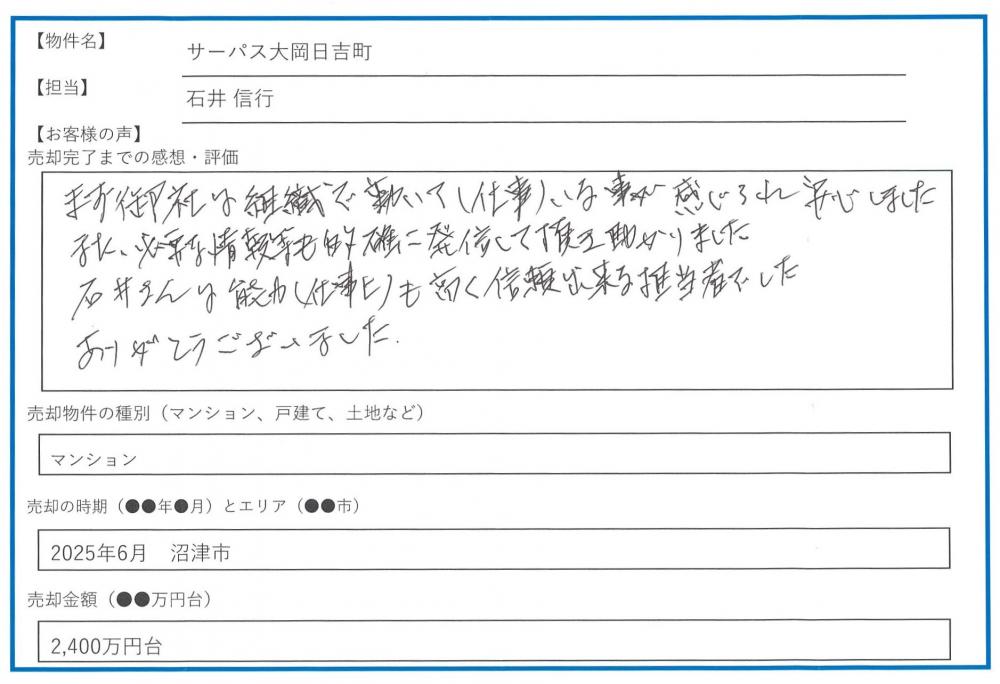 【物件名】
サーパス大岡日吉町
【担当】
石井 信行
【お客様の声】
売却完了までの感想・評価
まず御社は組織で動いて(仕事)いる事が感じられ安心しました
また、必要な情報等も的確に発信して頂き助かりました
石井さんは能力(仕事上)も高く信頼出来る担当者でした
ありがとうございました.
売却物件の種別（マンション、戸建て、土地など）
マンション
売却の時期（●●年●月）とエリア（●●市）
2025年6月　沼津市
売却金額（●●万円台）
2,400万円台